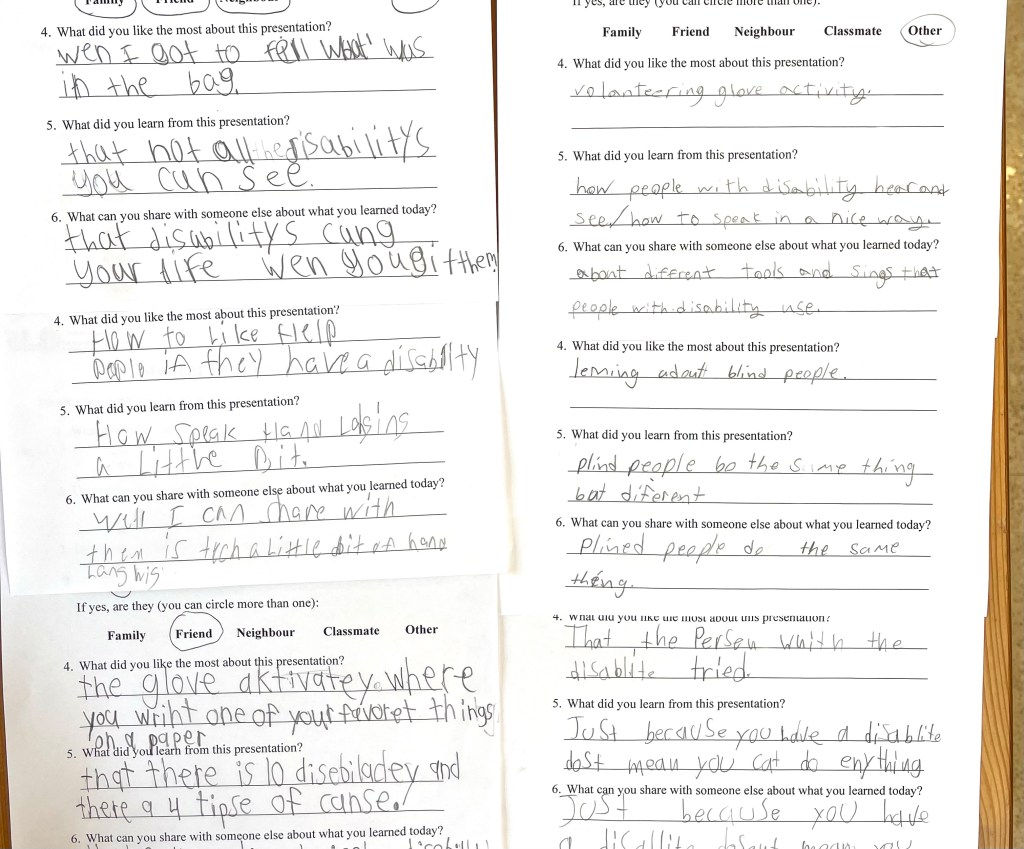 Family Friend Neighbour
4. What did you like the most about this presentation?
wen I got to fell what wus
in the bag.
5. What did you learn from this presentation?
that not all the disabilitys
you can see.
6. What can you share with someone else about what you learned today?
that disabilitys cang
your life wen you git them
4. What did you like the most about this presentation?
How to like Help
people if they have a disabllty
5. What did you learn from this presentation?
How speak Hand
a Litthe Bit.
6. What can you share with someone else about what you learned today?
will I can share with
them is tech a Little bit of hand
Lang wis
If yes, are they (you can circle more than one):
Family Friend Neighbour Classmate Other
4. What did you like the most about this presentation?
the glove aktivatey where
you wriht one of your favoret things
on a paper
5. What did you learn from this presentation?
that there is 10 disebiladey and
there a 4 tipse of canse.
6. What can you share with someone else about what you learned today?
If yes, are they (you can circle more than one):
Family Friend Neighbour Classmate Other
4. What did you like the most about this presentation?
volanteering glove activity.
5. What did you learn from this presentation?
how people with disability hear and
see/how to speak in a nice way.
6. What can you share with someone else about what you learned today?
about different tools and sings that
people with disability use.
4. What did you like the most about this presentation?
lerning adout blind people.
5. What did you learn from this presentation?
plind people bo the same thing
but diferent
6. What can you share with someone else about what you learned today?
Plined people do the same
theng.
4. What did you like the most about this presentation?
That the Persen whith the
disablite tried.
5. What did you learn from this presentation?
Just because you have a disablite
dost mean you cat do enything
6. What can you share with someone else about what you learned today?
Just because you have
a mean you